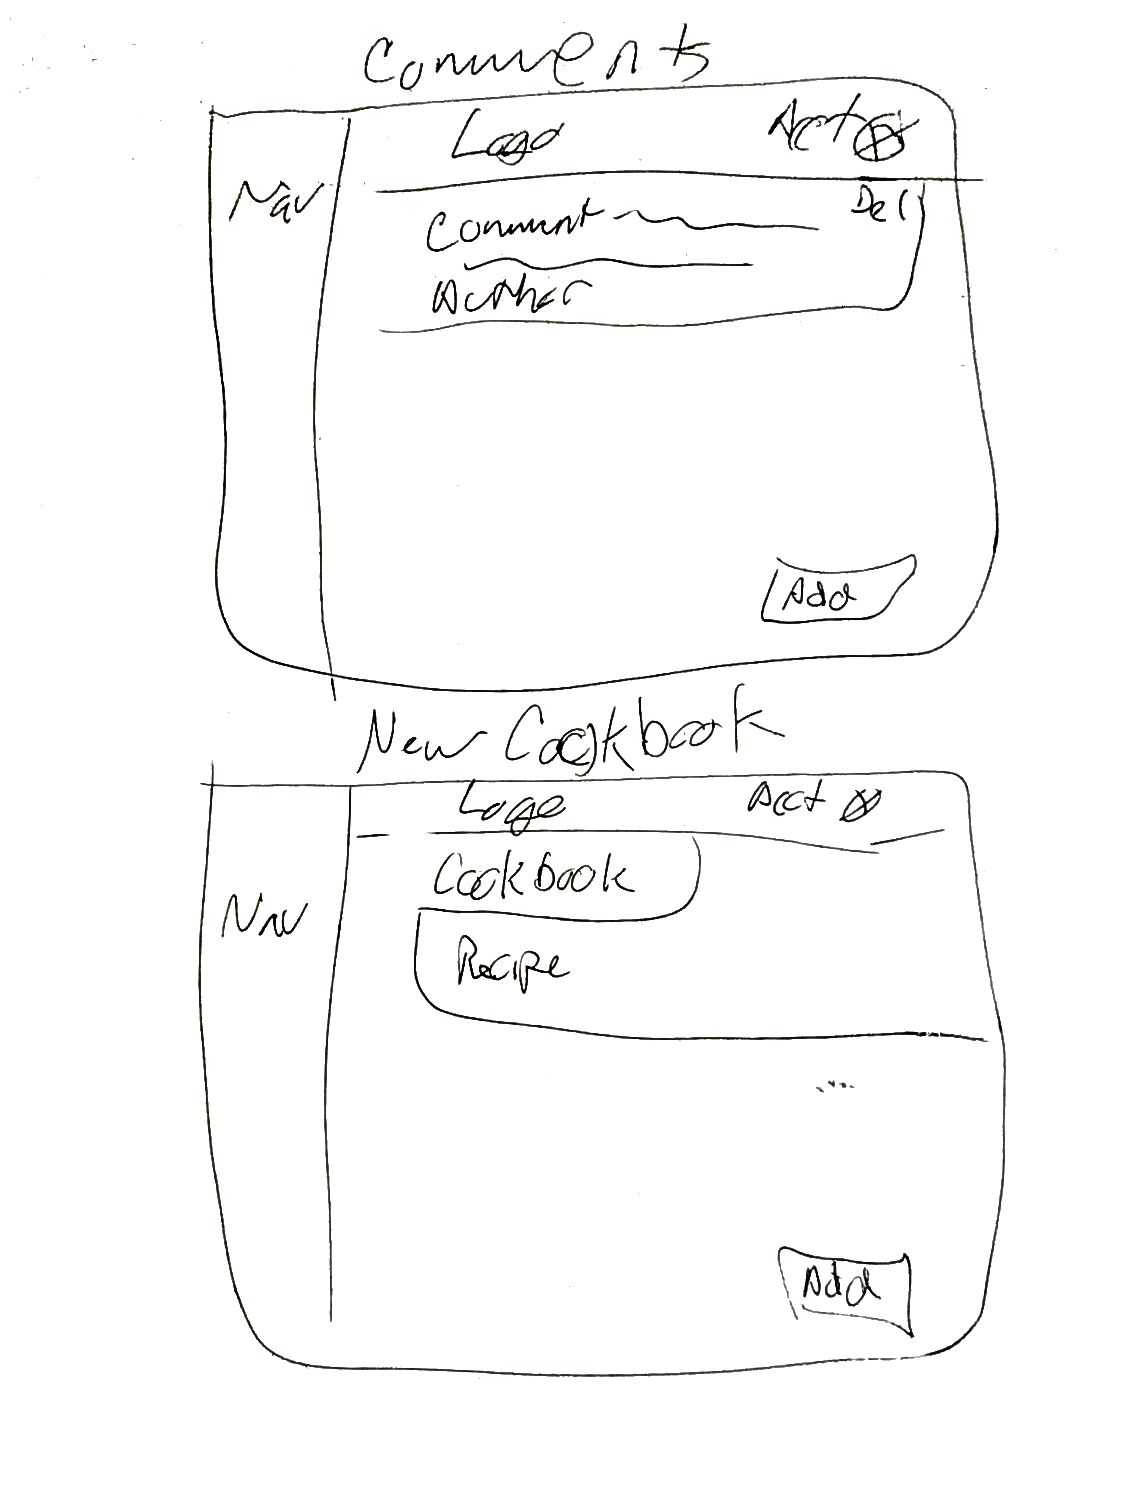 Comments
Logo Acct
Nav Del
Comment
Author
Add
New Cookbook
Logo Acct
Cookbook
Nav
Recipe
Add